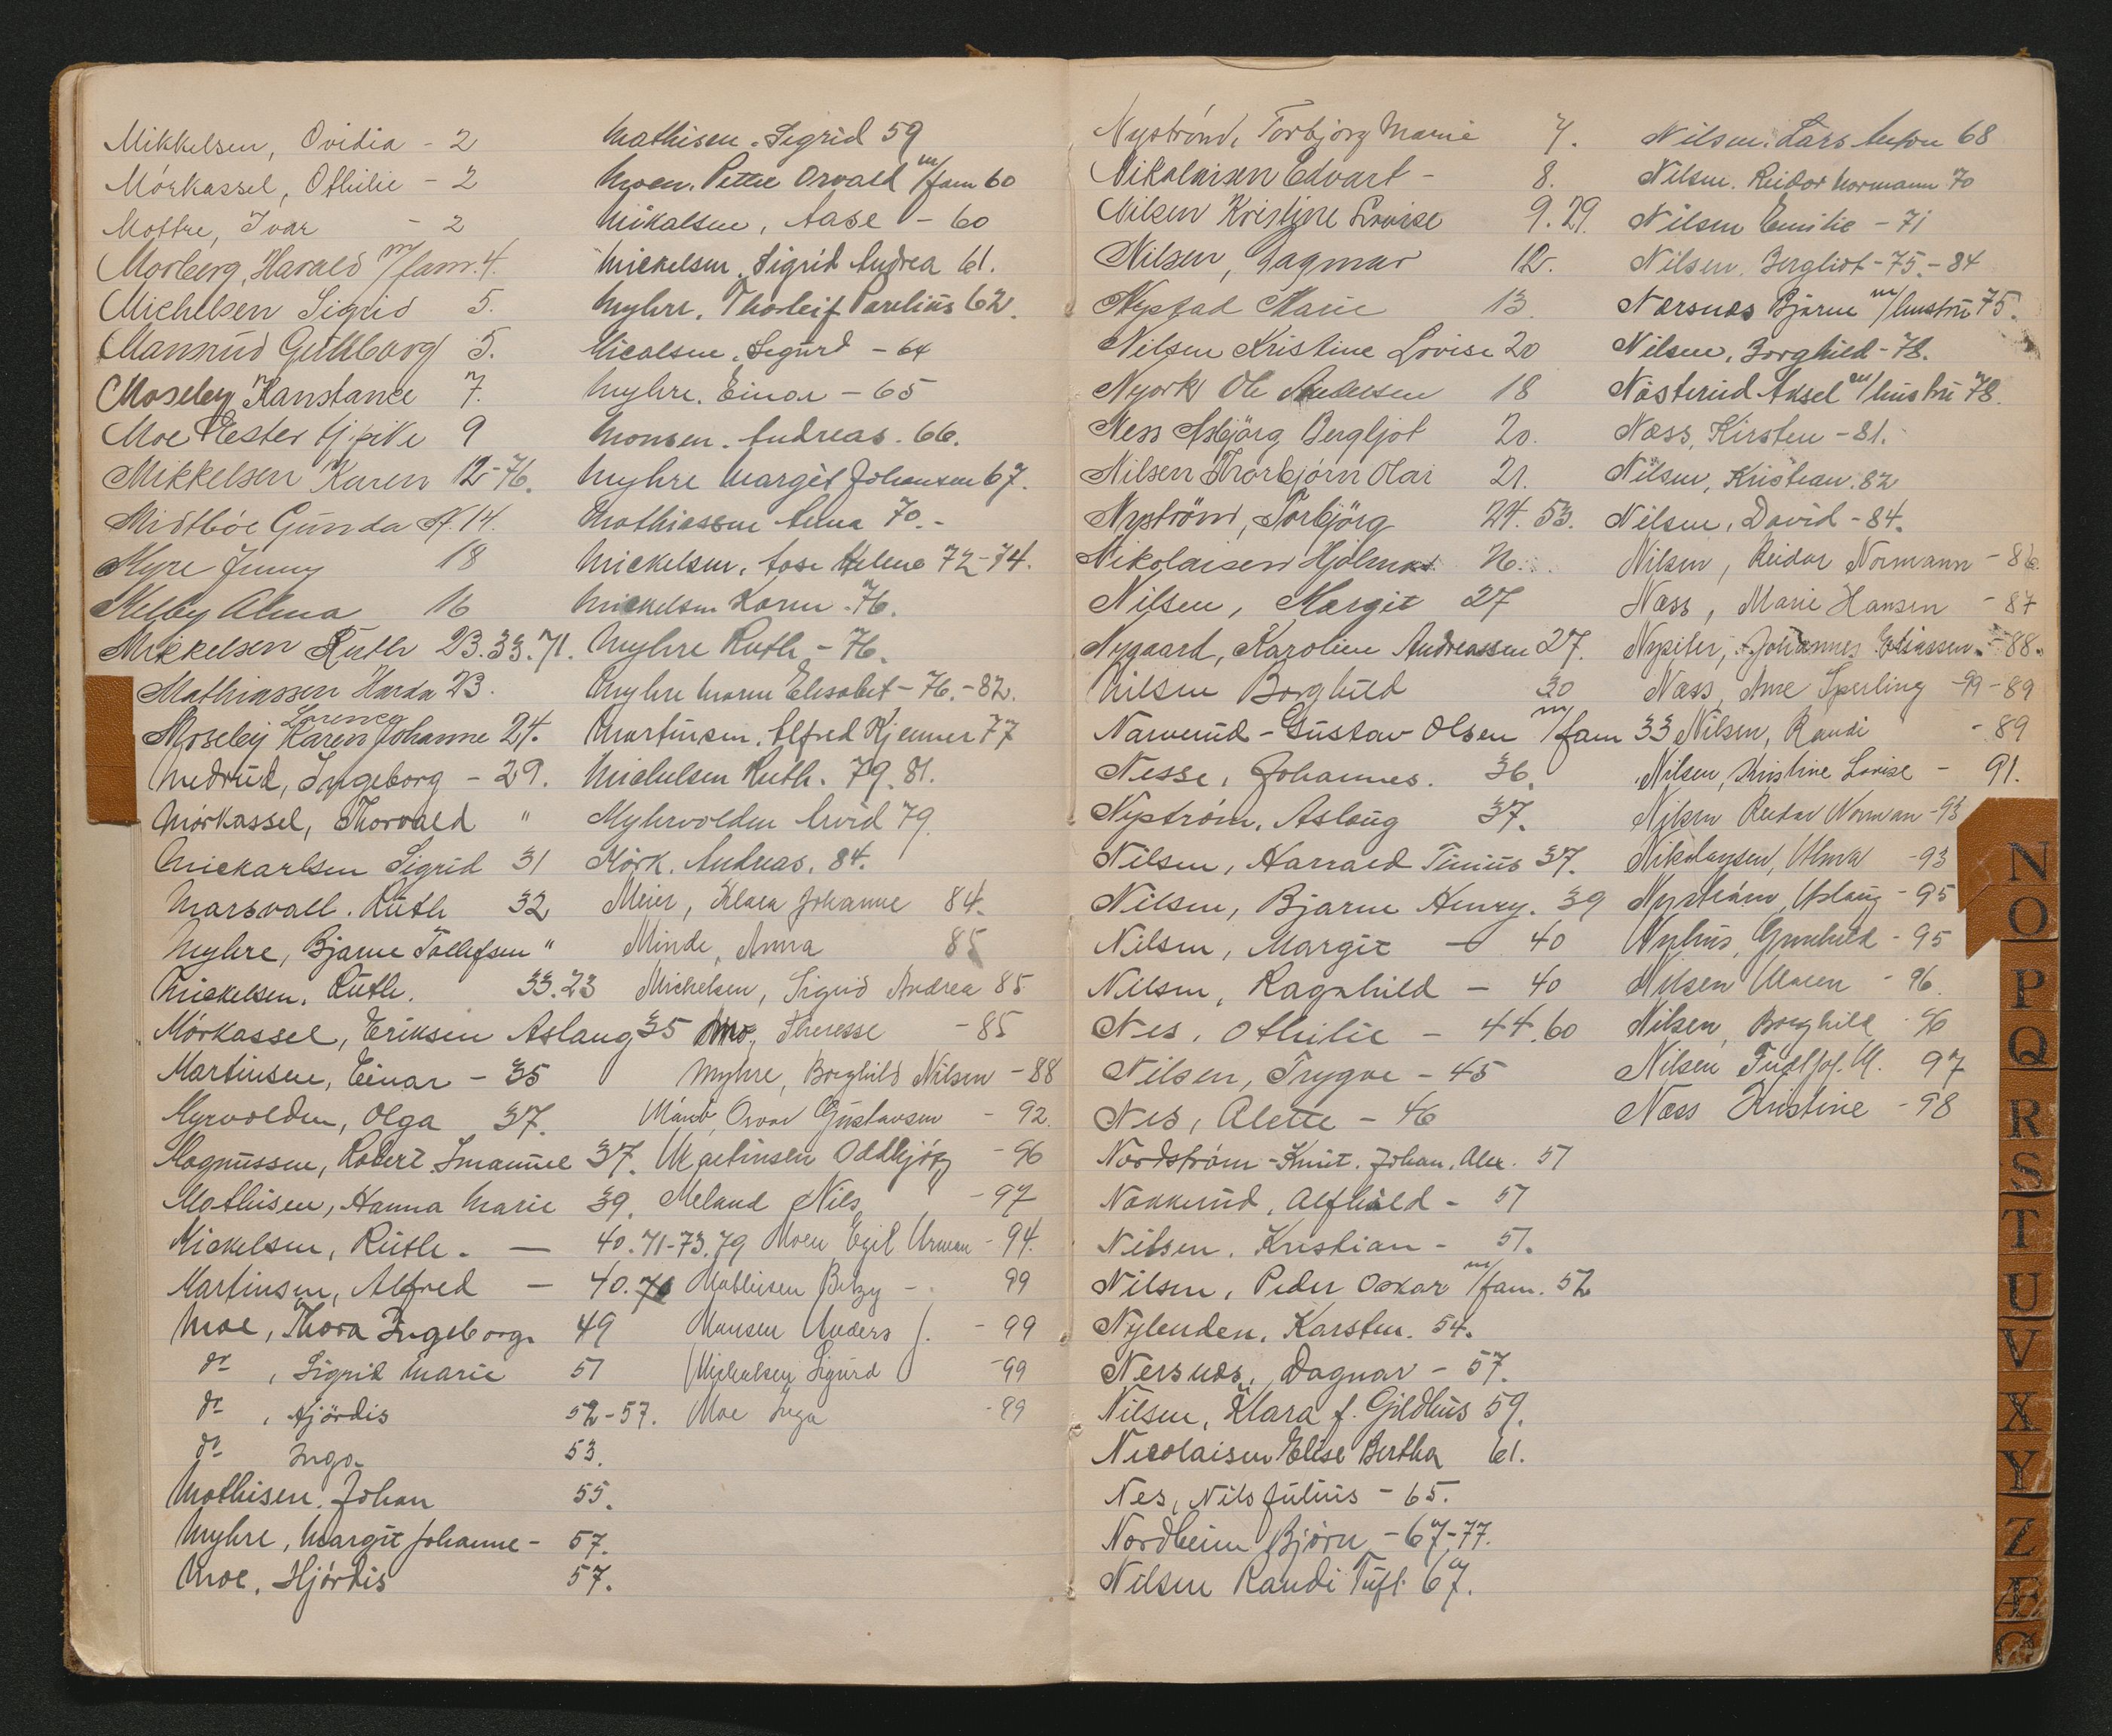 Mikkelsen, Ovidia - 2
Mörkassel, Othilie - 2
Mottre, Ivar - 2
Morberg, Harald m/fam. 4.
Michelsen Sigrid 5.
Mansrud Gullborg 5.
Moseby Konstance 7.
Moe Ester tj.pike 9
Mikkelsen Karen 12-76.
Midtböe Gunda A. 14.
Myre Jenny 18
Melby Alma 16
Mikkelsen Ruth 23.33.71.
Mathiassen Harda 23.
Lorence
Moseby Karen Johanne 24.
Medrud, Ingeborg - 29.
Mörkassel, Thorvald "
Mickarlsen Sigrid 31
Marsvall. Ruth 32
Myhre, Bjarne Tollefsen "
Mickelsen, Ruth. 33.23
Mörkassel, Eriksen Aslaug 35
Martinsen, Einar - 35
Myrvolden, Olga 37.
Magnussen, Robert Imanuel 37.
Mathisen, Hanna Marie 39.
Mickelsen, Ruth. — 40.71-73.79
Martinsen, Alfred — 40.70
Moe, Thora Ingeborg. 49
do , Sigrid Marie 51
do , Hjördis 52-57.
do Inga 53.
Mathisen. Johan 55.
Myhre, Margit Johanne - 57.
Moe, Hjördis 57.
Mathisen. Sigrid 59
Moen. Petter Orvald m/fam 60
Mikalsen, Aase - 60
Mickelsen. Sigrid Andrea 61.
Myhre. Thorleif Parelius 62.
Nicalsen. Sigurd - 64
Myhre. Einar - 65
Monsen. Andreas. 66.
Myhre Margit Johansen 67.
Mathiassen Anna 70.-
Mickelsen. Aase Helene 72-74.
Mickelsen Karen -76.
Myhre Ruth - 76.
Myhre Maren Elisabet - 76.-82.
Martinsen. Alfred Kjenner 77
Michelsen Ruth. 79.81.
Myhrvolden Arvid 79.
Mörk. Andreas. 84.
Meier, Klara Johanne 84.
Minde, Anna 85
Michelsen, Sigrid Andrea 85
Mo, Theresse - 85
Myhre, Borghild Nilsen - 88
Orvar Gustavsen - 92.
Martinsen Oddbjörg - 96
Meland Nils - 97
Moen Egil Urman - 94.
Mathisen Betzy - 99
Mansen Anders J. - 99
Michalsen Sigurd - 99
Moe Inga - 99
Nyströnd, Torbjörg Marie 7.
Nikolaisen Edvart - 8.
Nilsen Kristine Lovise 9.29.
Nilsen, Dagmar 12.
Nystad Marie 13.
Nilsen Kristine Lovise 20
Nyork Ole Andersen 18
Ness Asbjörg Bergljot 20.
Nilsen Thorbjörn Olai 21.
Nyström, Torbjörg 24. 53.
Nikolaisen Hjalmar 26.
Nilsen, Margit 27
Nygaard, Karoline Andreassen 27.
Nilsen Borghild 30
Narverud - Gustav Olsen m/fam 33
Nesse, Johannes. 36.
Nyström, Aslaug 37.
Nilsen, Harrald Tinius 37.
Nilsen, Bjarne Henry. 39
Nilsen, Margit — 40
Nilsen, Ragnhild — 40
Nes, Othilie — 44.60
Nilsen, Trygve - 45
Nes, Alette - 46
Nordström - Knut. Johan. Alex. 51
Nakkerud, Alfhild - 51
Nilsen, Kristian - 51.
Nilsen, Peder Oskar m/fam. 52
Nylenden, Karsten. 54.
Nersnæs, Dagnar - 57.
Nilsen, Klara f. Gildhus 59.
Nicolaisen Elise Bertha 61.
Nes, Nils Julius - 65.
Nordheim Björn - 67-77.
Nilsen Randi Tuft. 67.
Nilsen. Lars Anton 68
Nilsen. Reidar Normann 70
Nilsen Emilie - 71
Nilsen. Bergliot - 75.- 84
Nærsnæs Bjarne m/hustru 75.
Nilsen. Borghild - 78.
Nåsterud Aksel m/hustru 78.
Næss, Kirsten - 81.
Nilsen, Kristian. 82
Nilsen, David - 84.
Nilsen, Reidar Normann - 86.
Næss, Marie Hansen - 87
Nyseter, Johannes Eliassen. - 88.
Næss, Arne Sperling - 99 - 89
Nilsen, Randi - 89
Nilsen, Kristine Lovise - 91.
Nilsen Reidar Norman - 93
Nikolaysen, Alma - 93
Nyström, Aslaug - 95
Nyhus, Gunhild - 95
Nilsen Maren - 96.
Nilsen, Borghild 96
Nilsen Fridtjof. M. 97
Næss Kristine - 98
N
O
P
Q
R
S
T
U
V
X
Y
Z
Æ
Ø